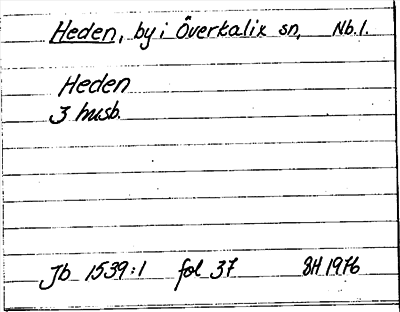 Heden, by i Överkalix sn, Nb.l.
Heden
3 husb.
Jb 1539:1 fol 37 SH 1976